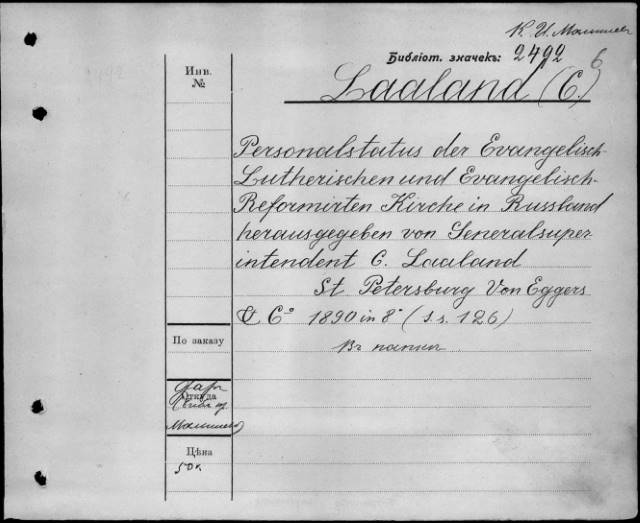 К. И.
Библіот. значекъ: 2492 6
Laaland (C.)
Инв.
№
Personalstatus der Evangelisch-
Lutherischen und Evangelisch-
Reformirten Kirche in Russland
herausgegeben von Generalsuper-
intendent C. Laaland
St Petersburg Von Eggers
& Cº 1890 in 8º (s.s. 126)
Въ папкѣ
По заказу
Откуда
Цѣна
50 к.